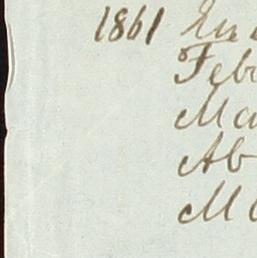 1861
Feb
Ma
Ab
Ma